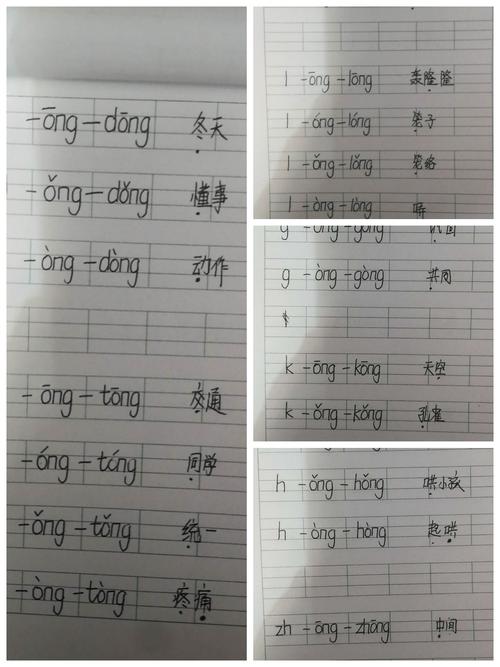 -ōng-dōng 冬天
-ǒng-dǒng 懂事
-òng-dòng 动作
-ōng-tōng
-óng-tóng 同学
-ǒng-tǒng 统一
-òng-tòng 疼痛
l -ōng-lōng 轰隆隆
l -óng-lóng 笼子
l -ǒng-lǒng 笼络
l -òng-lòng
g -òng-gòng 共同
k -ōng-kōng 天空
k -ǒng-kǒng 孔雀
h -ǒng-hǒng 哄小孩
h -òng-hòng 起哄
zh -ōng-zhōng 中间